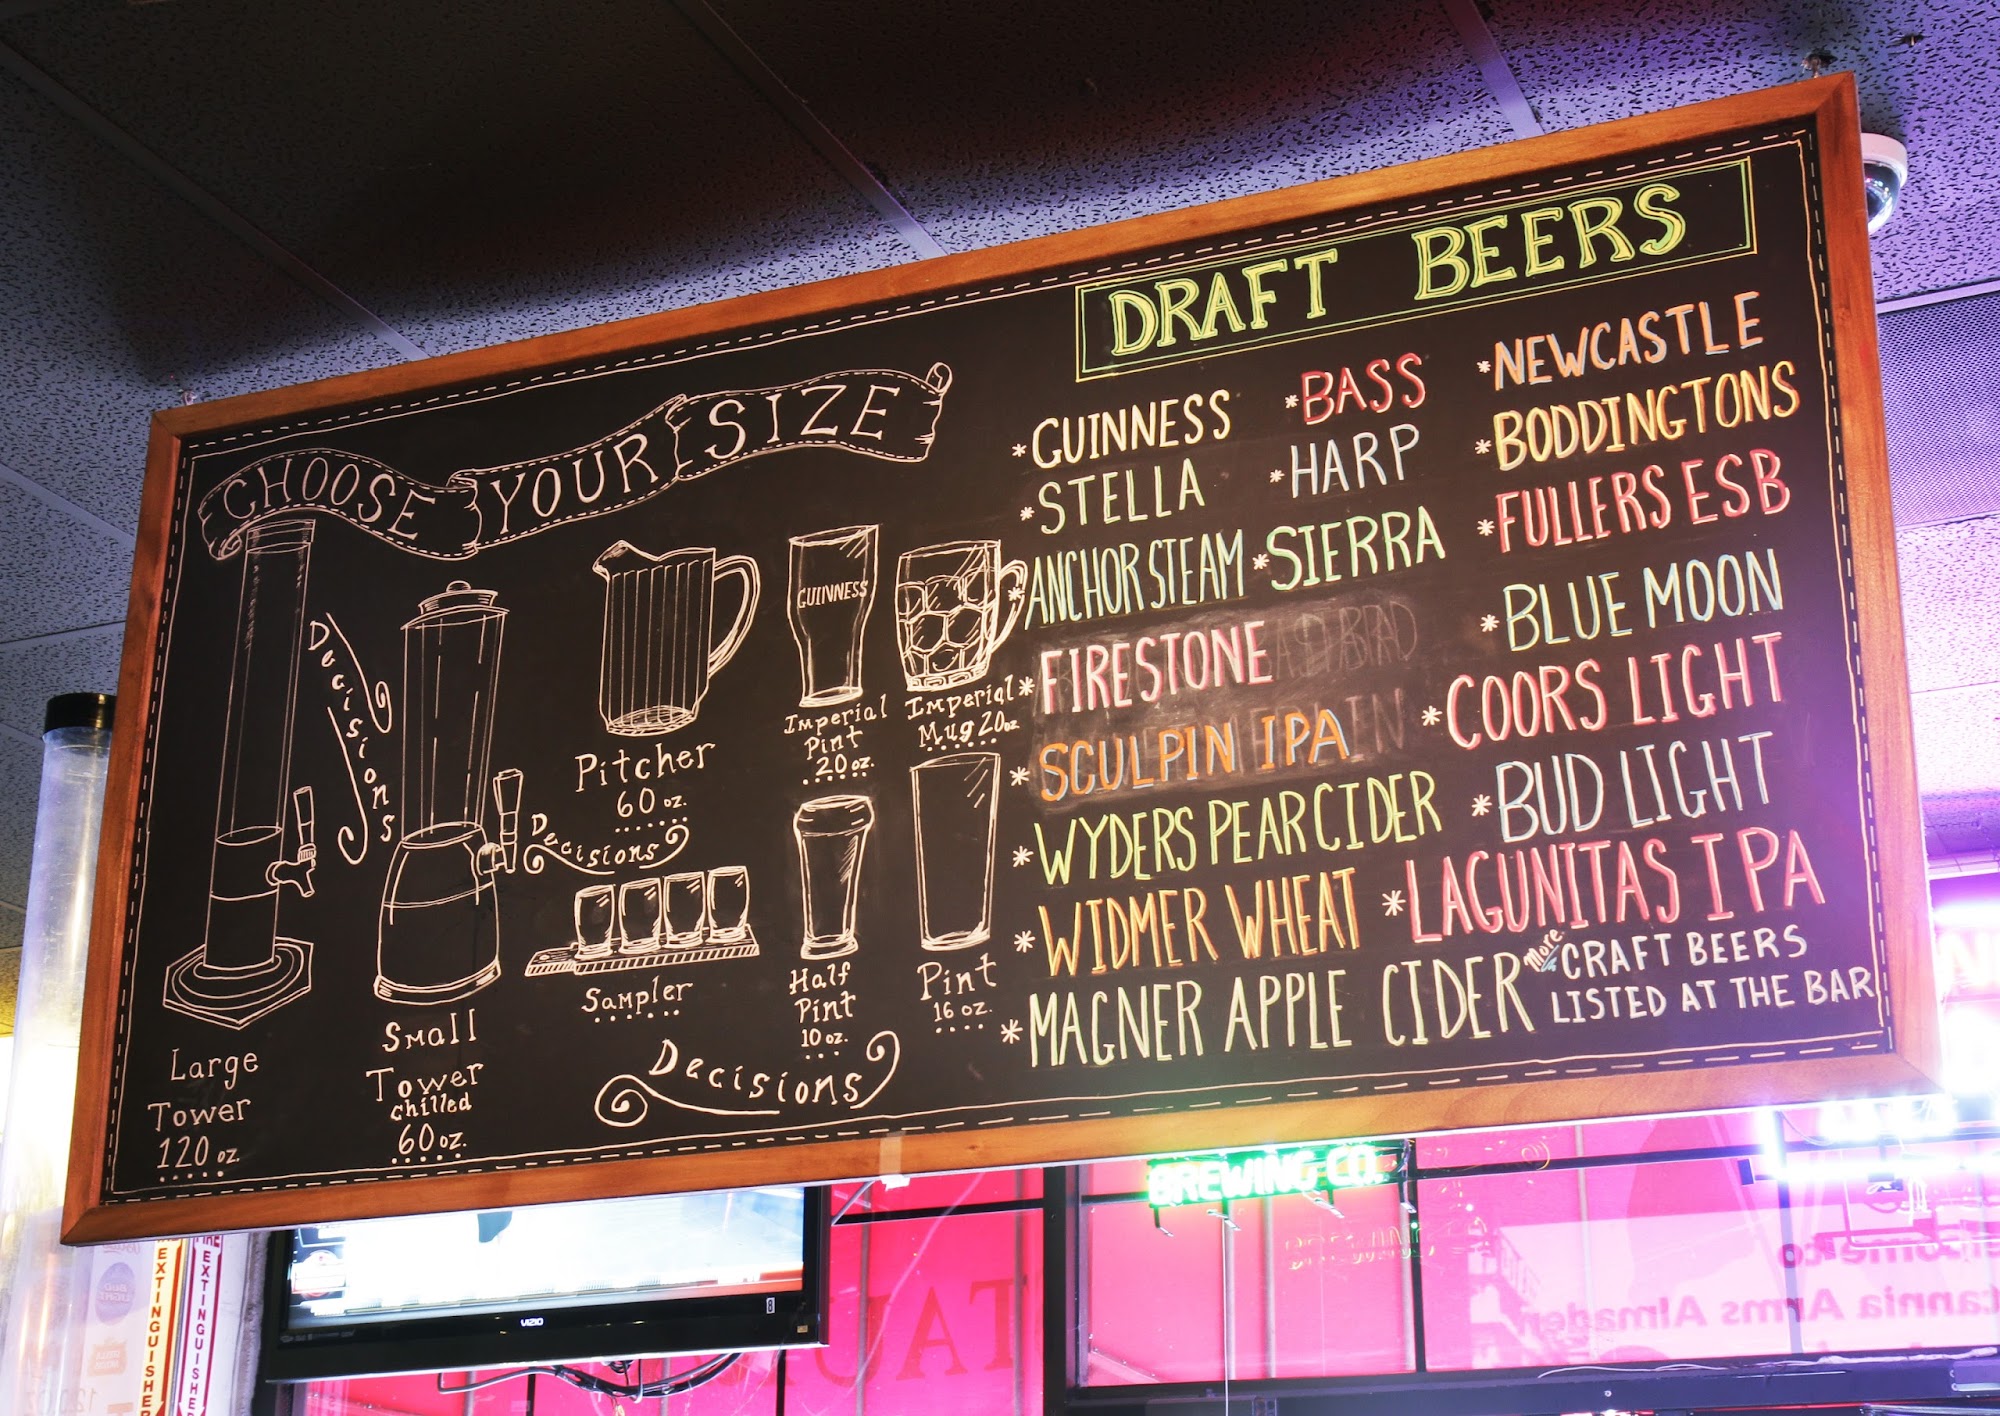 CHOOSE YOUR SIZE
Decisions
Large
Tower
120 oz.
Small
Tower
chilled
60 oz.
Pitcher
60 oz.
Decisions
Sampler
GUINNESS
Imperial
Pint
20 oz.
Imperial
Mug 20oz
Half
Pint
10 oz.
Pint
16 oz.
Decisions
DRAFT BEERS
*GUINNESS *BASS *NEWCASTLE
*STELLA *HARP *BODDINGTONS
*ANCHOR STEAM *SIERRA *FULLERS ESB
*FIRESTONE *BLUE MOON
*SCULPIN IPA *COORS LIGHT
*WYDERS PEAR CIDER *BUD LIGHT
*WIDMER WHEAT *LAGUNITAS IPA
*MAGNER APPLE CIDER
More CRAFT BEERS
LISTED AT THE BAR
BREWING CO.
VIZIO
EXTINGUISHER
EXTINGUISHER
BUD
LIGHT
Arms Almaden